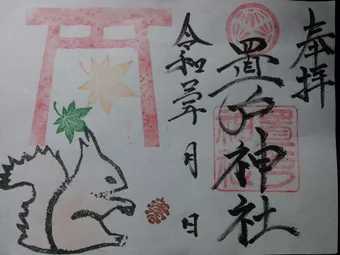 奉拝
疊戸神社
令和 年 月 日